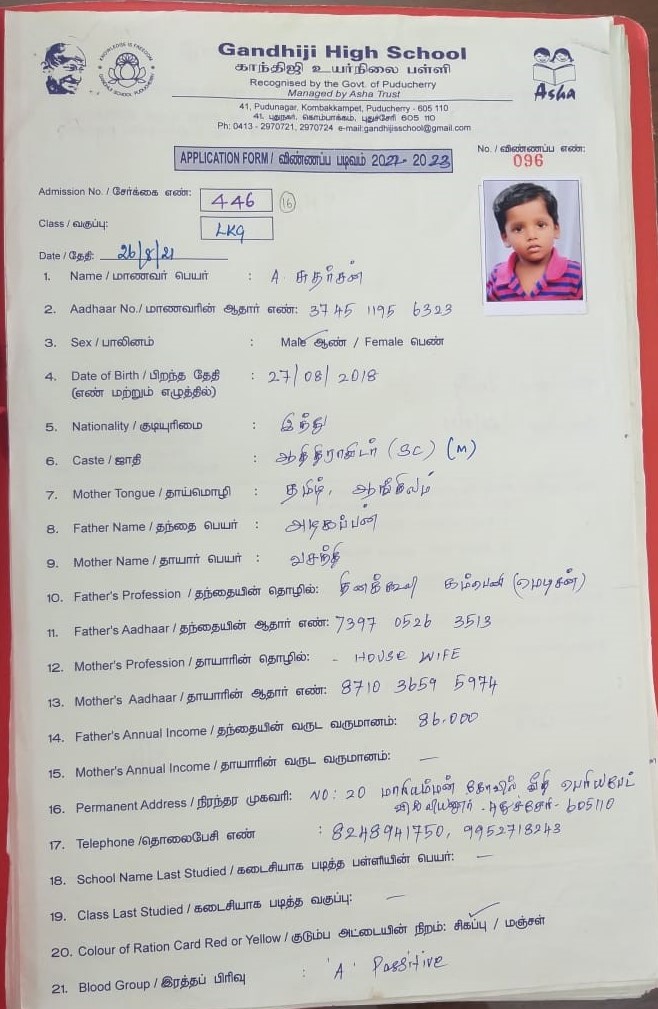 KNOWLEDGE IS FREEDOM
Gandhiji High School
காந்திஜி உயர்நிலை பள்ளி
Recognised by the Govt. of Puducherry
Managed by Asha Trust
Asha
41, Pudunagar, Kombakkampet, Puducherry - 605 110
41, புதுநகர், கொம்பாக்கம், புதுச்சேரி 605 110
Ph: 0413 - 2970721, 2970724 e-mail:gandhijisschool@gmail.com
APPLICATION FORM / விண்ணப்ப படிவம் 2022- 2023
No. / விண்ணப்ப எண்:
096
Admission No. / சேர்க்கை எண்: 446 16
Class / வகுப்பு: LKG
Date / தேதி: 26/8/21
1. Name / மாணவர் பெயர் : A. சுதர்சன்
2. Aadhaar No./ மாணவரின் ஆதார் எண்: 3745 1195 6323
3. Sex / பாலினம் : Male ஆண் / Female பெண்
4. Date of Birth / பிறந்த தேதி : 27/08/2018
(எண் மற்றும் எழுத்தில்)
5. Nationality / குடியுரிமை : இந்து
6. Caste / ஜாதி : ஆதிதிராவிடர் (SC) (M)
7. Mother Tongue / தாய்மொழி : தமிழ், ஆங்கிலம்
8. Father Name / தந்தை பெயர் : அடிகப்பன்
9. Mother Name / தாயார் பெயர் : வசந்தி
10. Father's Profession / தந்தையின் தொழில்: தினக்கூலி கம்பெனி (மெடிசன்)
11. Father's Aadhaar / தந்தையின் ஆதார் எண்: 7397 0526 3513
12. Mother's Profession / தாயாரின் தொழில்: - HOUSE WIFE
13. Mother's Aadhaar / தாயாரின் ஆதார் எண்: 8710 3659 5974
14. Father's Annual Income / தந்தையின் வருட வருமானம்: 86.000
15. Mother's Annual Income / தாயாரின் வருட வருமானம்: —
16. Permanent Address / நிரந்தர முகவரி: NO: 20 மாரியம்மன் கோவில் வீதி பெரியபேட்
வில்லியனூர் - புதுச்சேரி - 605110
17. Telephone /தொலைபேசி எண் : 8248941750, 9952718243
18. School Name Last Studied / கடைசியாக படித்த பள்ளியின் பெயர்: —
19. Class Last Studied / கடைசியாக படித்த வகுப்பு: —
20. Colour of Ration Card Red or Yellow / குடும்ப அட்டையின் நிறம்: சிகப்பு / மஞ்சள்
21. Blood Group / இரத்தப் பிரிவு : 'A' Passitive